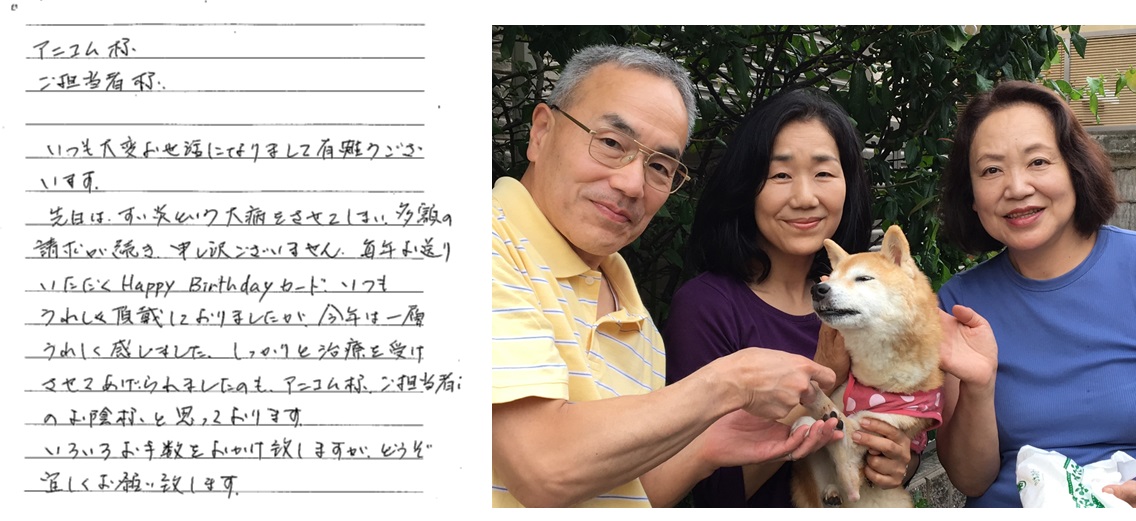 アニコム様
ご担当者様
いつも大変お世話になりまして有難うござ
います。
先日は、すい炎という大病をさせてしまい、多数の
請求が続き、申し訳ございません。毎年お送り
いただくHappy Birthdayカード、いつも
うれしく頂戴しておりましたが、今年は一層
うれしく感じました。しっかりと治療を受け
させてあげられましたのも、アニコム様、ご担当者
のお陰様、と思っております。
いろいろお手数をおかけ致しますが、どうぞ
宜しくお願い致します。